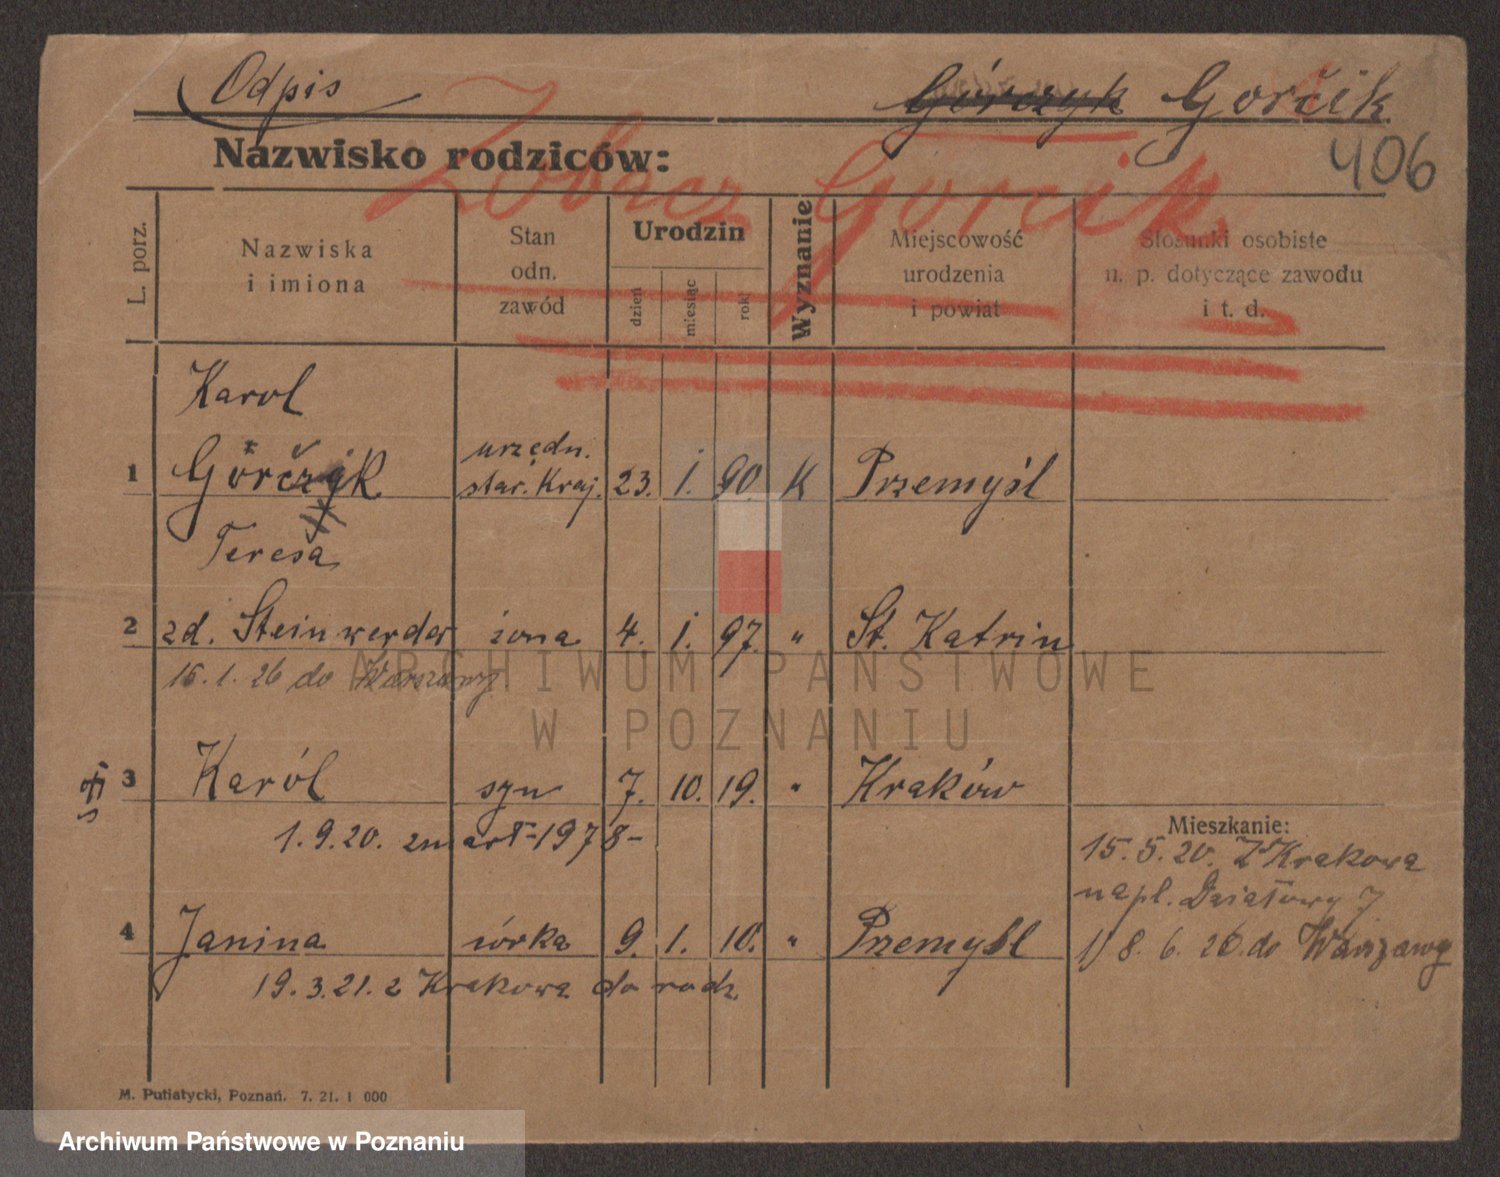 Odpis
Górczyk Gorčik
406
Nazwisko rodziców:
Zobacz Gorcik
L. porz.
Nazwiska
i imiona
Stan
odn.
zawód
Urodzin
dzień
miesiąc
rok
Wyznanie
Miejscowość
urodzenia
i powiat
Stosunki osobiste
n. p. dotyczące zawodu
i t. d.
Karol
1 urzędn.
star. Kraj. 23. 1. 90. K Przemyśl
Teresa
2 zd. Steinwerder żona 4. 1. 97. " St. Katrin
15.1.26 do Warszawy
3 Karól syn 7. 10. 19. " Kraków
1.9.20. zmarł-1978-
Mieszkanie:
15.5.20. Z Krakowa
napl. Działowy 7
4 Janina córka 9. 1. 10. " Przemyśl
1) 8.6.26. do Warszawy
19.3.21. z Krakowa do rodz.
M. Putiatycki, Poznań. 7. 21. 1 000
ARCHIWUM PAŃSTWOWE
W POZNANIU
Archiwum Państwowe w Poznaniu